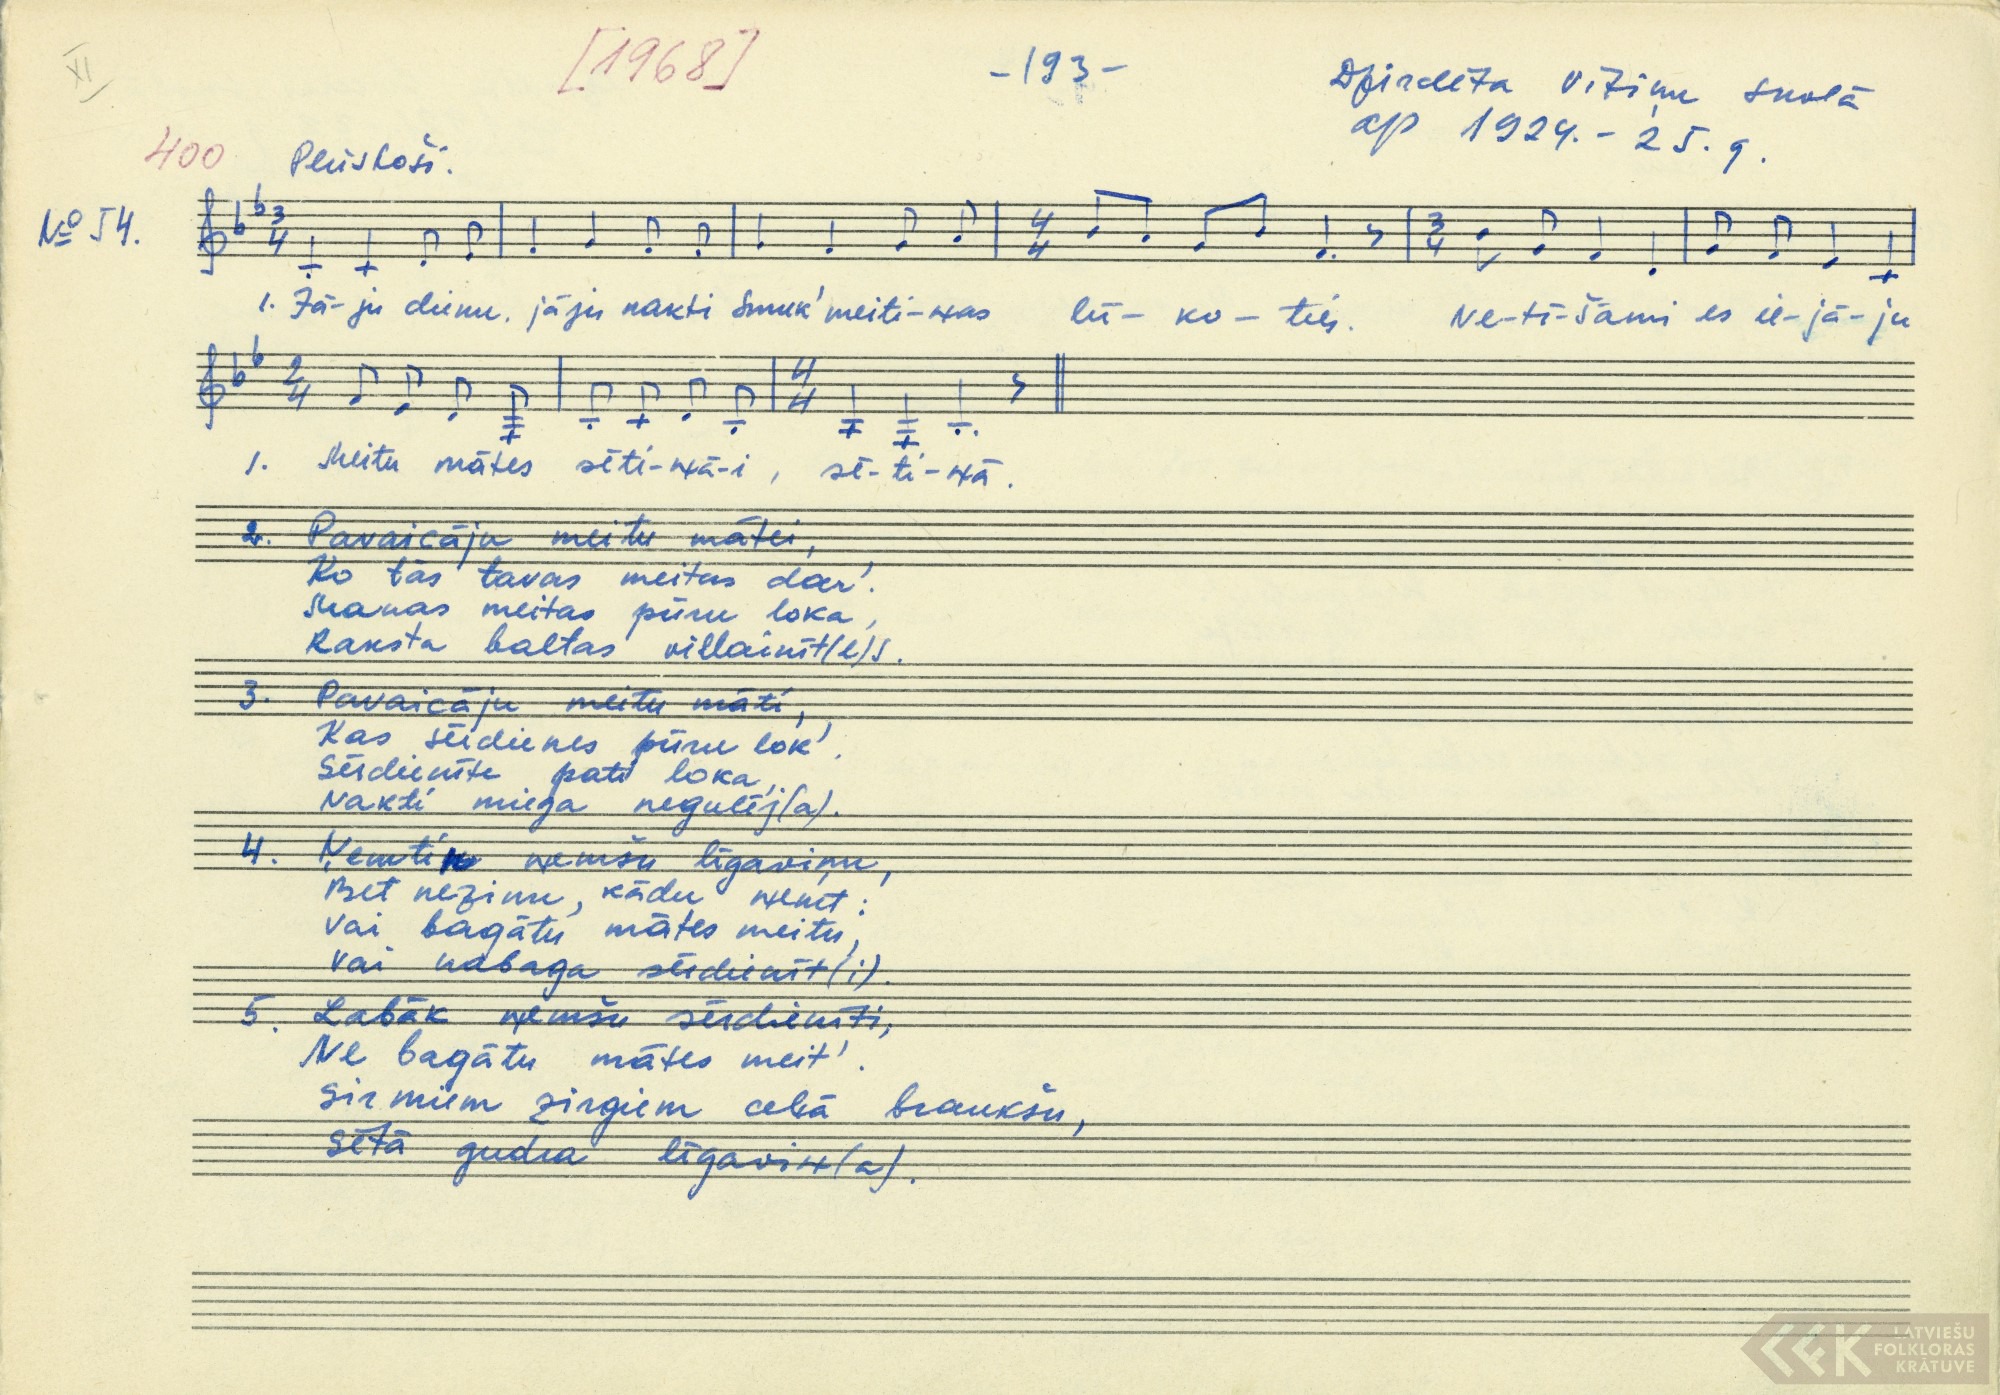 XI
[1968]
-193-
Dzirdēta Vītiņu skolā
ap 1924.-25.g.
400 Plūstoši.
№ 54.
3/4 4/4 3/4
1. Jā-ju dienu. jāju nakti Smuk' meiti-ņas lū-ko-ties. Ne-tī-šāmi es ie-jā-ju
2/4 4/4
1. Meitu mātes sēti-ņā-i, sē-ti-ņā.
2. Pavaicāju meitu mātei,
Ko tās tavas meitas dar'.
Manas meitas pūru loka,
Raksta baltas villainīt(e)s.
3. Pavaicāju meitu māti,
Kas sērdienes pūru lok'.
Sērdienīte pati loka,
Nakti miega negulēj(a).
4. Ņemti ņemšu līgaviņu,
Bet nezinu, kādu ņemt:
Vai bagātu mātes meitu,
Vai nabaga sērdienīt(i).
5. Labāk ņemšu sērdienīti,
Ne bagātu mātes meit'.
Sirmiem zirgiem ceļā braukšu,
Sētā gudra līgaviņ(a).
LFK LATVIEŠU
FOLKLORAS
KRĀTUVE